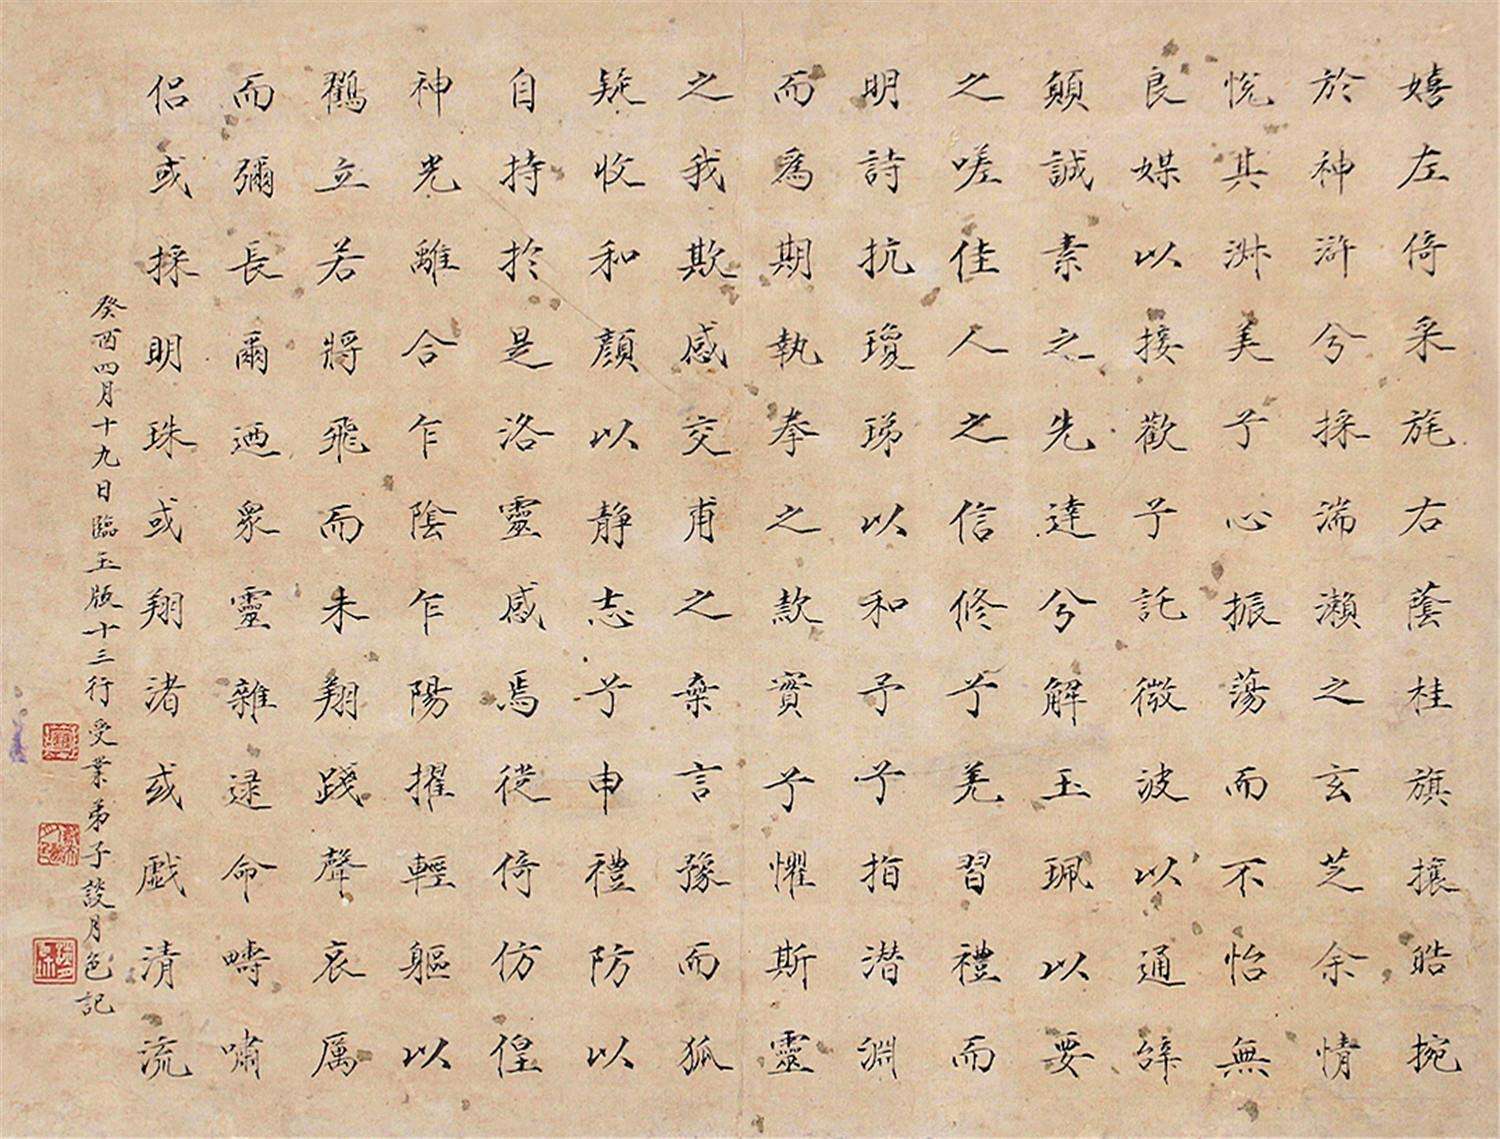 嬉左倚采旄右蔭桂旗攘皓捥
於神滸兮採湍瀨之玄芝余情
悅其淑美兮心振蕩而不怡無
良媒以接歡兮託微波以通辭
願誠素之先達兮解玉珮以要
之嗟佳人之信修兮羌習禮而
明詩抗瓊珶以和予兮指潛淵
而為期執拳之款實兮懼斯靈
之我欺感交甫之棄言豫而狐
疑收和顏以靜志兮申禮防以
自持於是洛靈感焉徙倚仿偟
神光離合乍陰乍陽擢輕軀以
鶴立若將飛而未翔踐聲哀厲
而彌長爾迺眾靈雜遝命疇嘯
侶或採明珠或翔渚或戲清流
癸酉四月十九日臨玉版十三行受業弟子談月色記